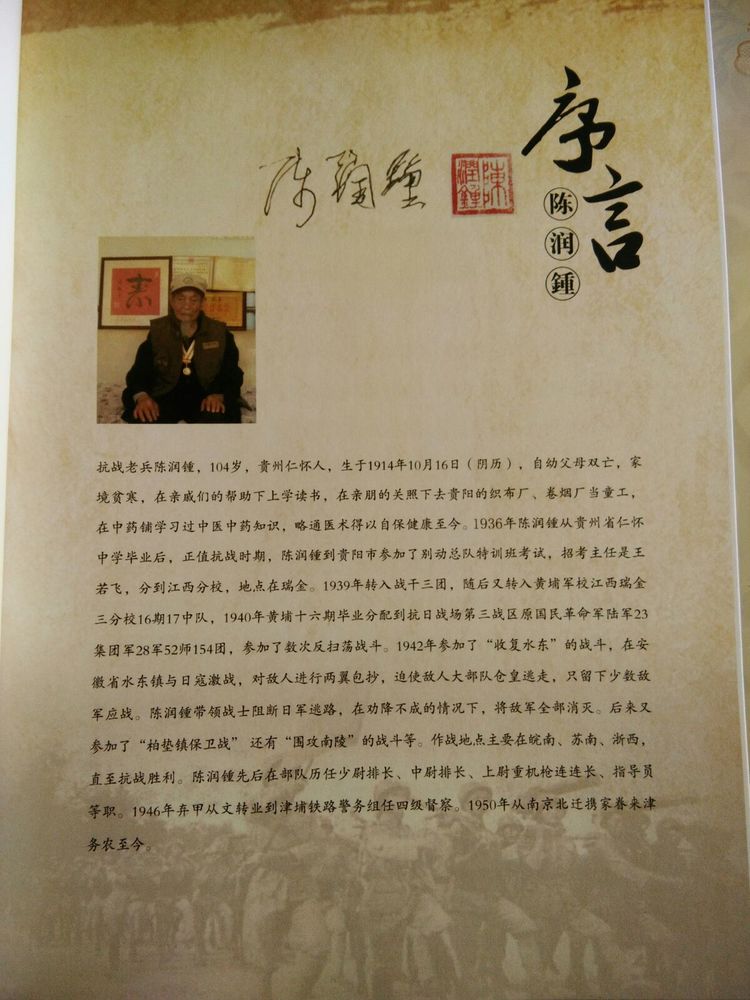 序言
陈润鍾
陈润鍾
陳潤鍾
抗战老兵陈润锺，104岁，贵州仁怀人，生于1914年10月16日（阴历），自幼父母双亡，家
境贫寒，在亲戚们的帮助下上学读书，在亲朋的关照下去贵阳的织布厂、卷烟厂当童工，
在中药铺学习过中医中药知识，略通医术得以自保健康至今。1936年陈润锺从贵州省仁怀
中学毕业后，正值抗战时期，陈润锺到贵阳市参加了别动总队特训班考试，招考主任是王
若飞，分到江西分校，地点在瑞金。1939年转入战干三团，随后又转入黄埔军校江西瑞金
三分校16期17中队，1940年黄埔十六期毕业分配到抗日战场第三战区原国民革命军陆军23
集团军28军52师154团，参加了数次反扫荡战斗。1942年参加了“收复水东”的战斗，在安
徽省水东镇与日寇激战，对敌人进行两翼包抄，迫使敌人大部队仓皇逃走，只留下少数敌
军应战。陈润锺带领战士阻断日军逃路，在劝降不成的情况下，将敌军全部消灭。后来又
参加了“柏垫镇保卫战” 还有“围攻南陵”的战斗等。作战地点主要在皖南、苏南、浙西，
直至抗战胜利。陈润锺先后在部队历任少尉排长、中尉排长、上尉重机枪连连长、指导员
等职。1946年弃甲从文转业到津埔铁路警务组任四级督察。1950年从南京北迁携家眷来津
务农至今。